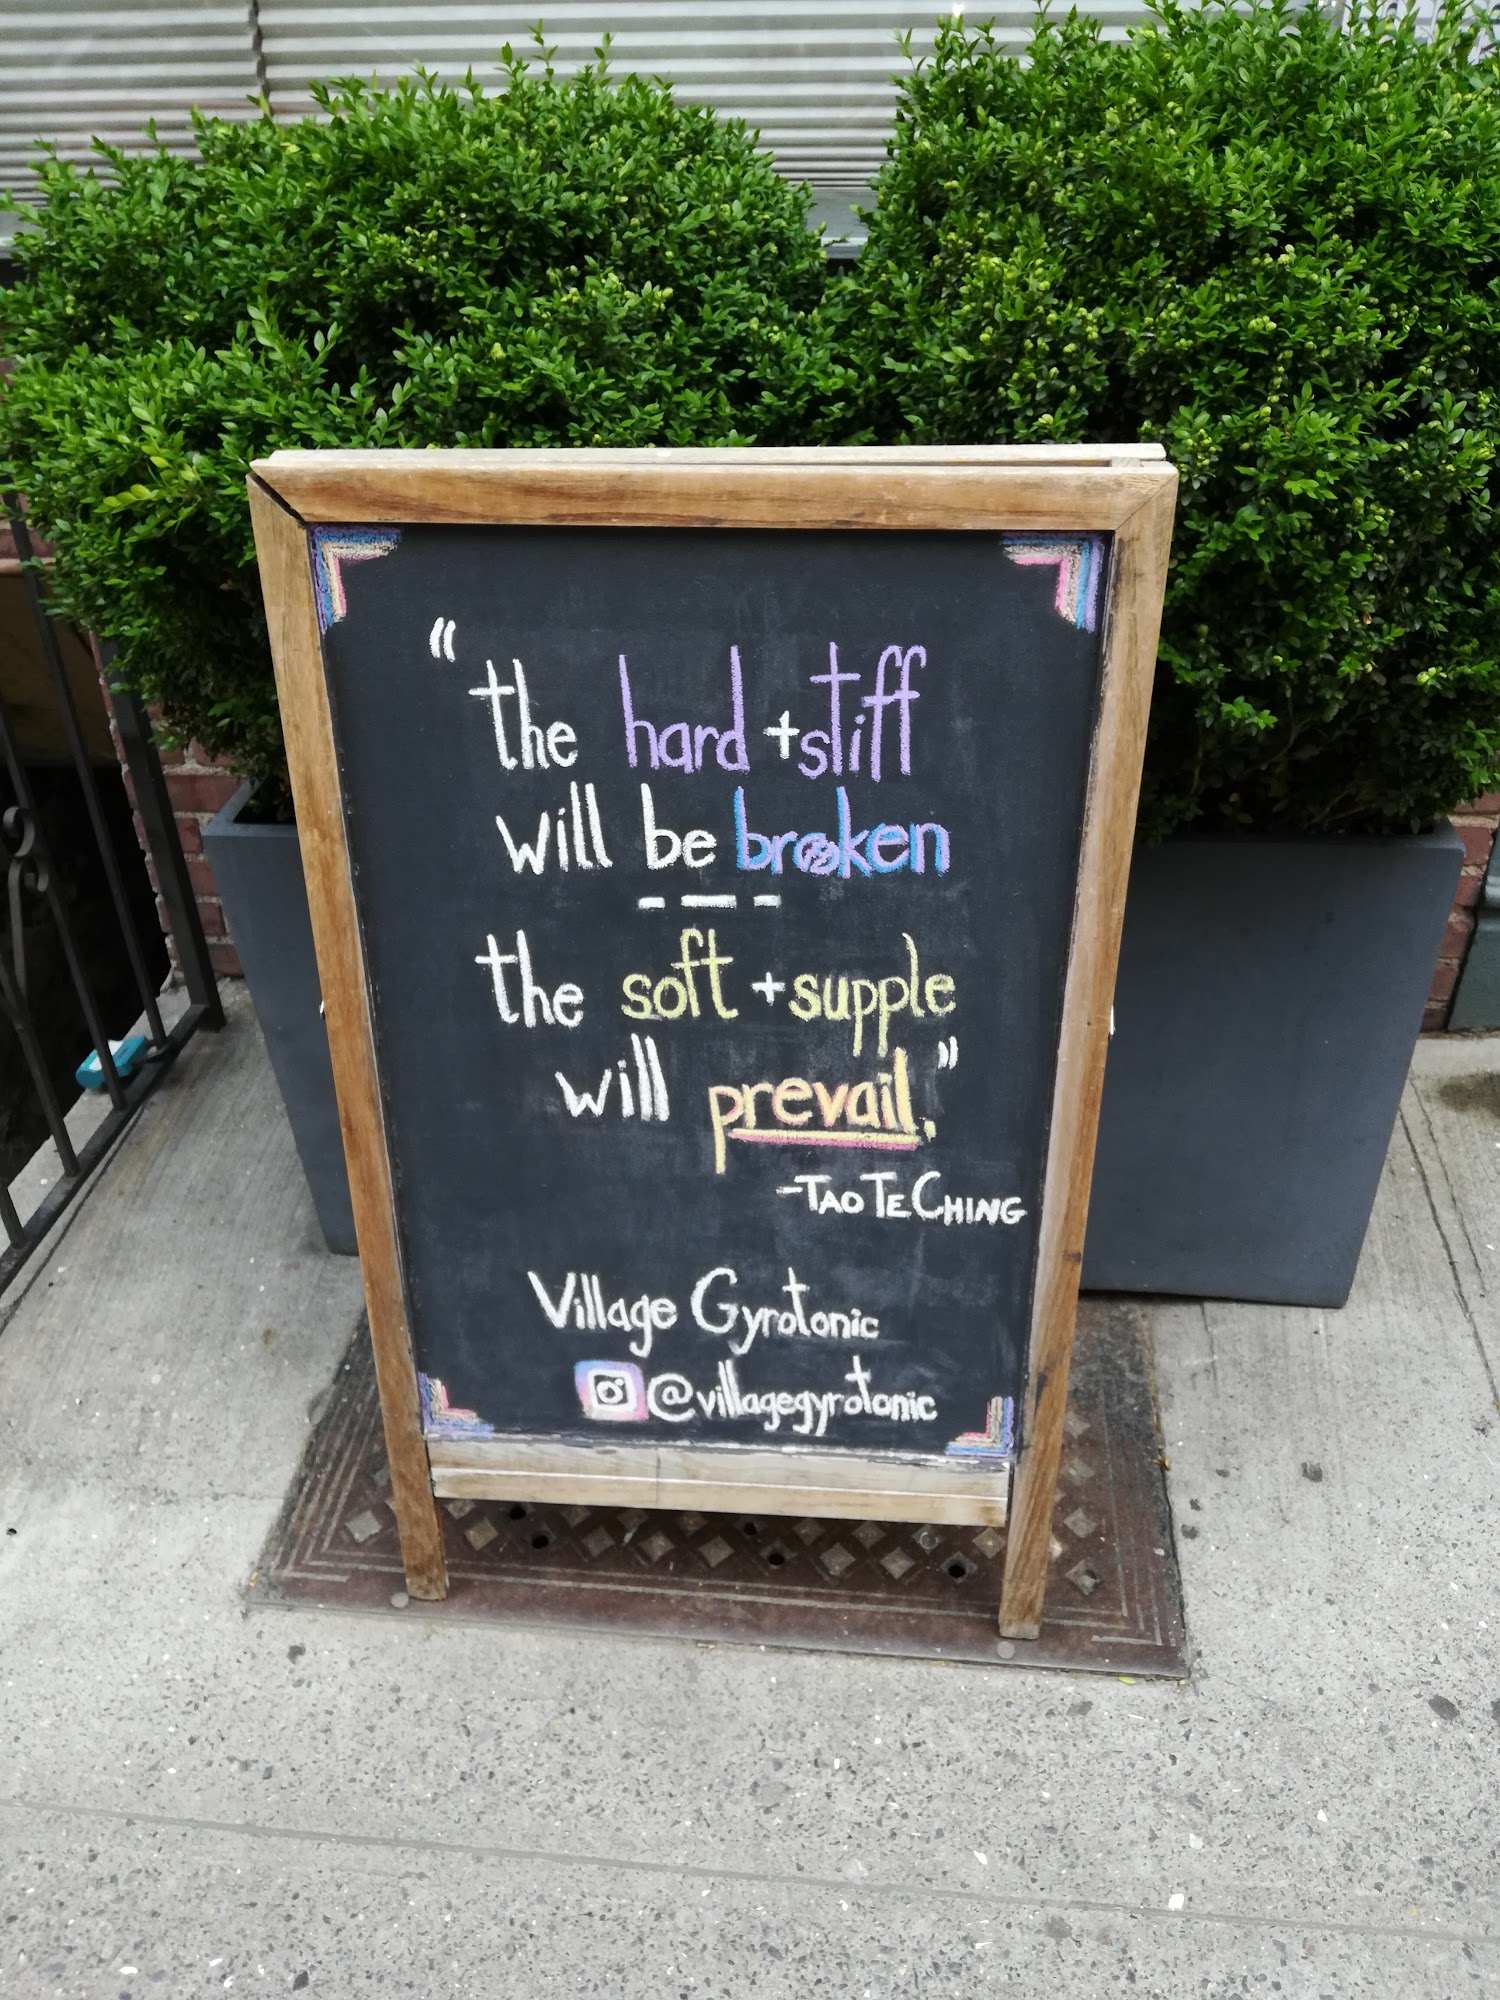 "the hard + stiff
will be broken
---
the soft + supple
will prevail."
-TAO TE CHING
Village Gyrotonic
@villagegyrotonic